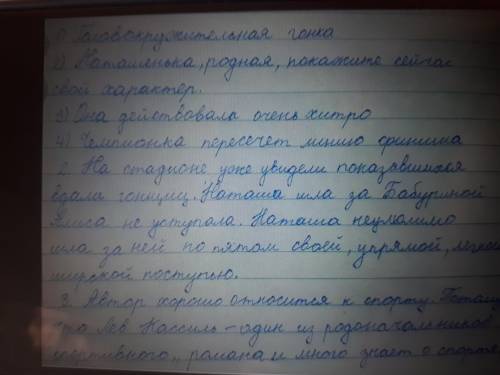 1) Головокружительная гонка
2) Наташенька, родная, покажите сейчас
свой характер.
3) Она действовала очень хитро
4) Чемпионка пересечет линию финиша
2. На стадионе уже увидели показавшихся
вдали гонщиц. Наташа шла за Бабуриной
Алиса не уступала. Наташа неумолимо
шла за ней по пятом своей, упрямой,
широкой поступью.
3. Автор хорошо относится к спорту. Потому
что Лев Кассиль - один из родоначальников
спортивного,, романа и много знает о спорте